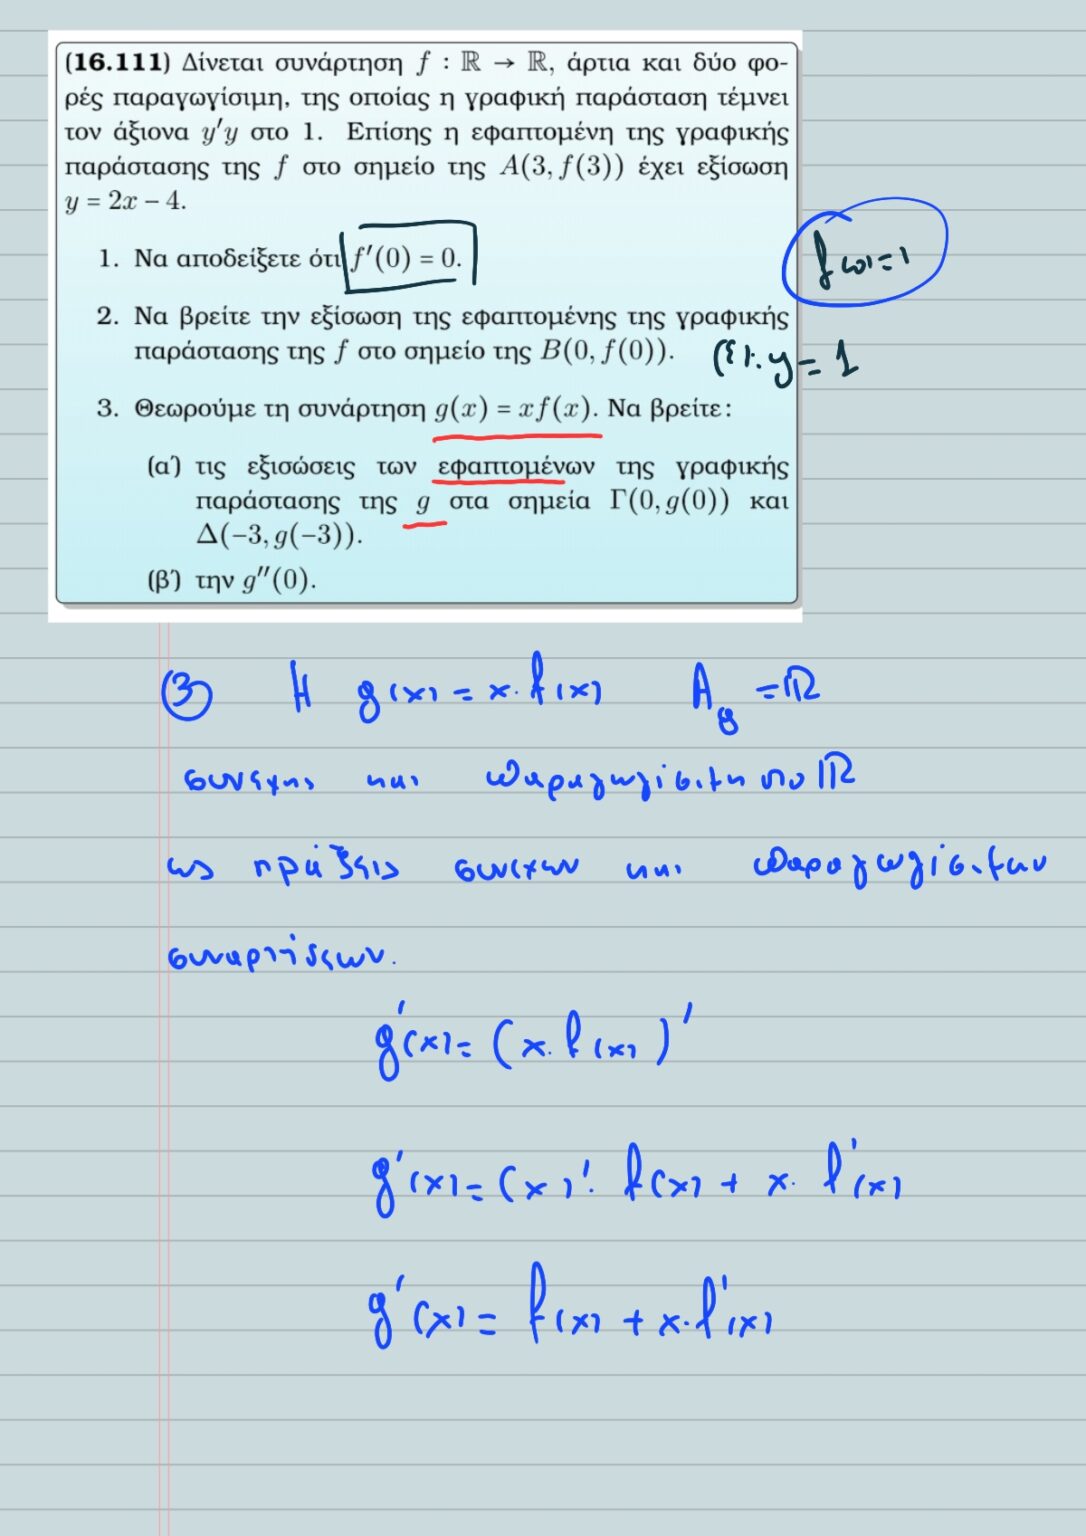 (16.111) Δίνεται συνάρτηση f : ℝ → ℝ, άρτια και δύο φο-
ρές παραγωγίσιμη, της οποίας η γραφική παράσταση τέμνει
τον άξιονα y′y στο 1. Επίσης η εφαπτομένη της γραφικής
παράστασης της f στο σημείο της A(3, f(3)) έχει εξίσωση
y = 2x − 4.
1. Να αποδείξετε ότι f′(0) = 0.
f(0)=1
2. Να βρείτε την εξίσωση της εφαπτομένης της γραφικής
παράστασης της f στο σημείο της B(0, f(0)). (ε): y = 1
3. Θεωρούμε τη συνάρτηση g(x) = xf(x). Να βρείτε:
(α΄) τις εξισώσεις των εφαπτομένων της γραφικής
παράστασης της g στα σημεία Γ(0, g(0)) και
Δ(−3, g(−3)).
(β΄) την g″(0).
③ Η g(x) = x·f(x) A_g = ℝ
συνεχης και παραγωγίσιμη στο ℝ
ως πράξεις συνεχων και παραγωγίσιμων
συναρτήσεων.
g′(x) = (x·f(x))′
g′(x) = (x)′·f(x) + x·f′(x)
g′(x) = f(x) + x·f′(x)